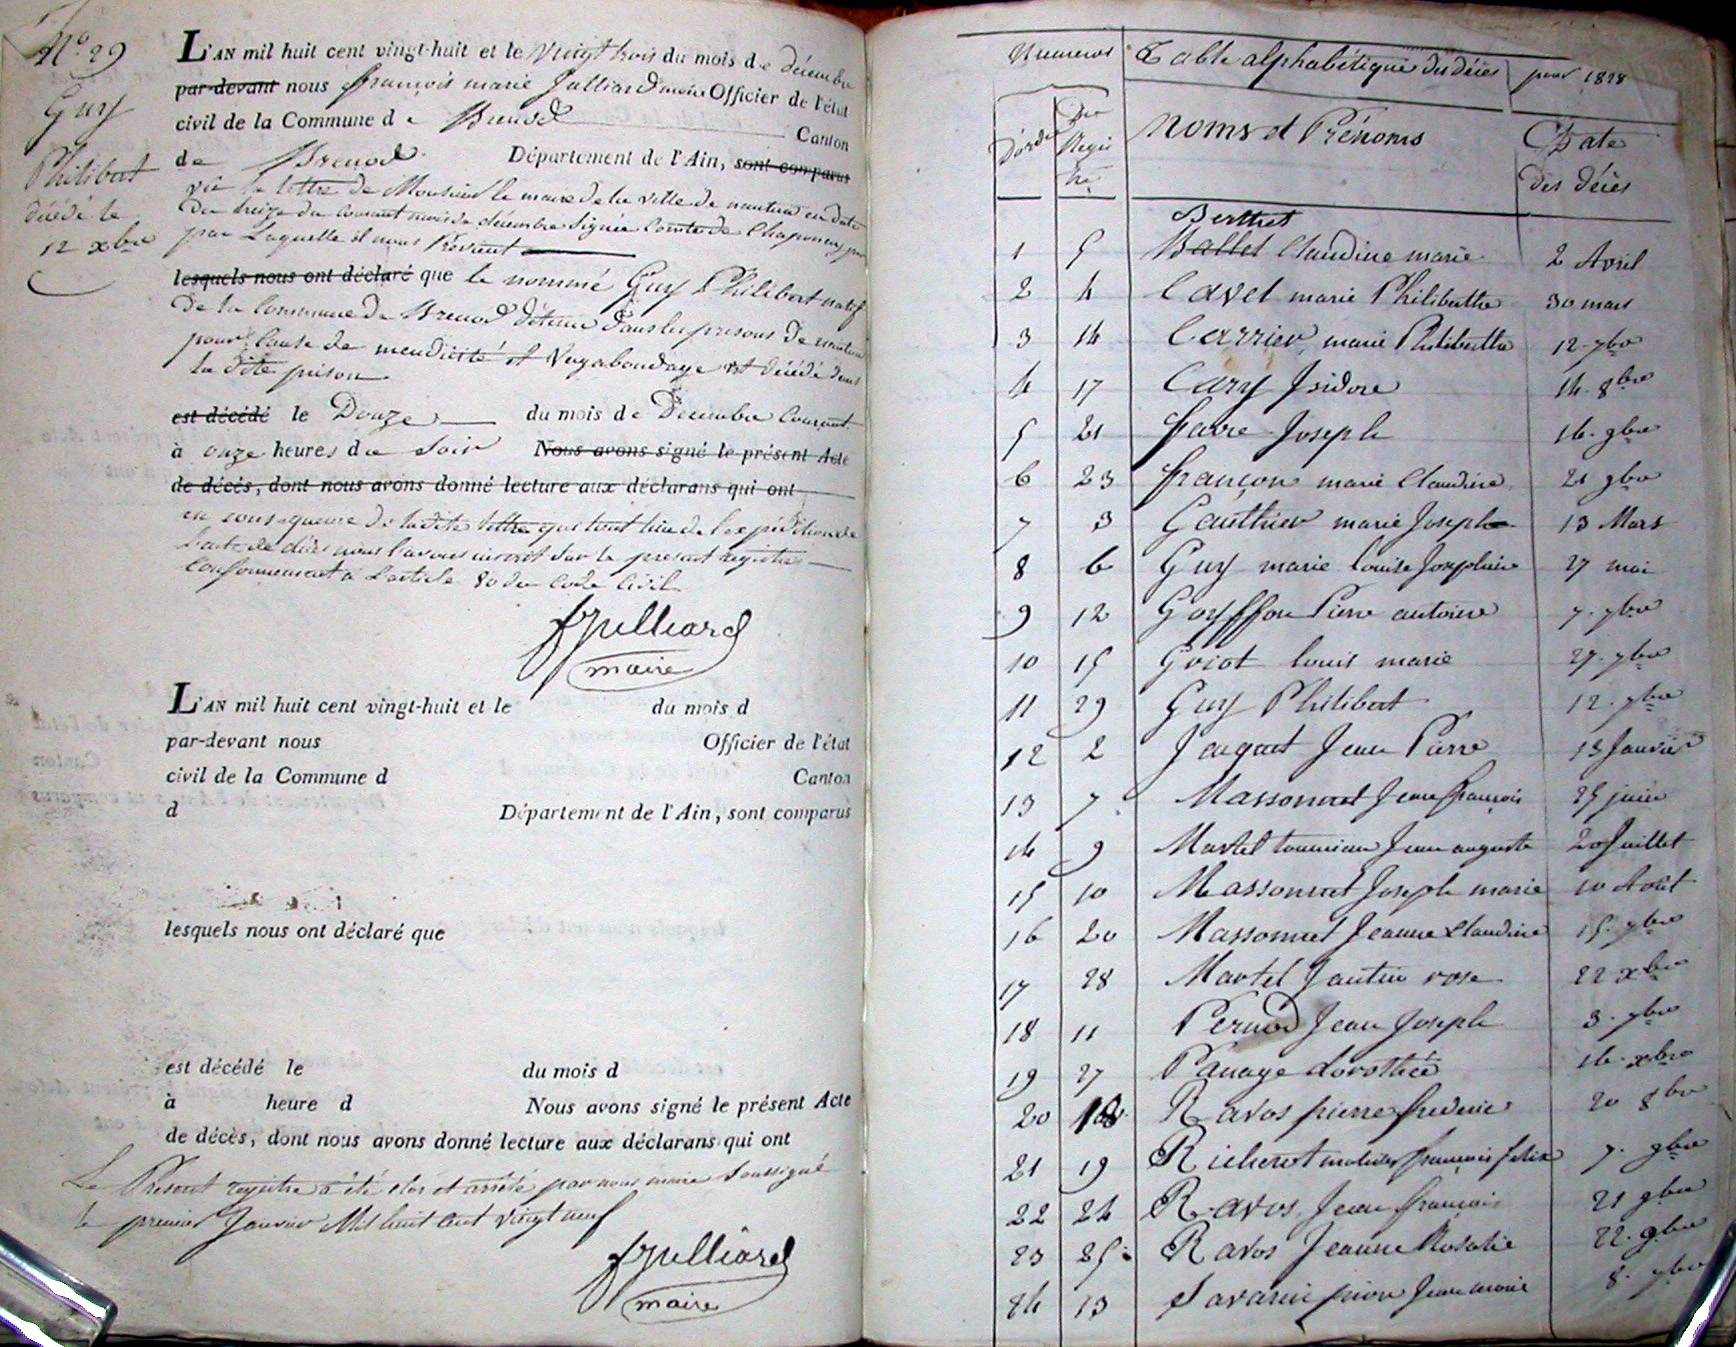 N.° 29
Guy
Philibert
décédé le
12 xbre
L'AN mil huit cent vingt-huit et le vingt trois du mois de décembre
par-devant nous françois marie Julliard maire Officier de l'état
civil de la Commune de Brenod Canton
de Brenod Département de l'Ain, sont comparus
vu la lettre de Monsieur le maire de la ville de nantua en date
du treize du Courant mois de décembre Signée Comte de Chaponay
par Laquelle il nous Prévient
lesquels nous ont déclaré que le nommé Guy Philibert natif
De la Commune de Brenod détenu dans les prisons De nantua
pour Cause de mendicité et Vagabondage est décédé dans
la dite prison
est décédé le Douze du mois de Décembre Courant
à onze heures du Soir Nous avons signé le présent Acte
de décès, dont nous avons donné lecture aux déclarans qui ont
en consequence de ladite lettre qui tient lieu de l'expédition de
l'acte de décès nous l'avons inscrit Sur le present registre
Conformement à L'article 80 du Code Civil
fJulliard
maire
L'AN mil huit cent vingt-huit et le du mois d
par-devant nous Officier de l'état
civil de la Commune d Canton
d Département de l'Ain, sont comparus
lesquels nous ont déclaré que
est décédé le du mois d
à heure d Nous avons signé le présent Acte
de décès, dont nous avons donné lecture aux déclarans qui ont
Le Présent registre a été clos et arrêté par nous maire Soussigné
le premier Janvier Mil huit cent vingt neuf
fJulliard
maire
Numeros Table alphabétique des décès pour 1828
D'ordre Du Regis tre Noms et Prénoms Date Des décès
Berthet
1 5 Ballet Claudine marie 2 Avril
2 4 Cavet marie Philiberthe 30 mars
3 14 Carrier marie Philiberthe 12 7bre
4 17 Cary Isidore 14 8bre
5 21 favre Joseph 16 9bre
6 23 françon marie Claudine 21 9bre
7 3 Gauthier marie Joseph 13 Mars
8 6 Guy marie Louise Josephine 27 mai
9 12 Goyffon Pierre antoine 7 7bre
10 15 Goiot Louis marie 27 7bre
11 29 Guy Philibert 12 xbre
12 2 Jaquet Jean Pierre 13 Janvier
13 7 Massonnet Jean françois 25 juin
14 9 Martel Jean auguste 20 Juillet
15 10 Massonnet Joseph marie 10 Août
16 20 Massonnet Jeanne Claudine 15 9bre
17 28 Martel rose 22 xbre
18 11 Pernod Jean Joseph 3 7bre
19 27 Panage dorothée 16 xbre
20 18 Ravos pierre frederic 20 8bre
21 19 Richerot françois felix 7 9bre
22 24 Ravos Jean françois 21 9bre
23 25 Ravos Jeanne Rosalie 22 9bre
24 13 Savarin Jean marie 8 7bre